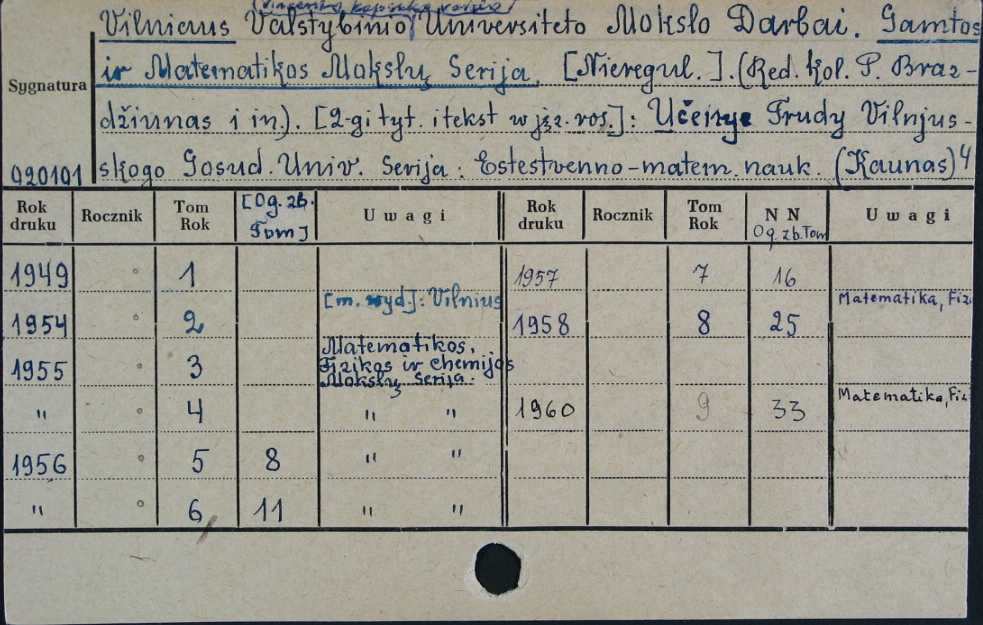 (Vincento Kapsuko vardo)
Vilniaus Valstybinio Universiteto Mokslo Darbai. Gamtos
ir Matematikos Mokslų Serija. [Nieregul.]. (Red. Kol. P. Braz-
Sygnatura
džiunas i in.). [2-gi tyt. i tekst w jęz. ros.]: Učenye Trudy Vilnjus-
020101 skogo Gosud. Univ. Serija: Estestvenno-matem. nauk. (Kaunas) 4
Rok druku Rocznik Tom Rok [Og. zb. Tom] Uwagi Rok druku Rocznik Tom Rok N N Og. zb. Tom Uwagi
1949 ° 1 1957 7 16
[m. wyd.]: Vilnius Matematika, Fiz
1954 ° 2 1958 8 25
Matematikos,
1955 ° 3 Fizikos ir Chemijos
Mokslų Serija.
" ° 4 " " 1960 9 33 Matematika, Fiz
1956 ° 5 8 " "
" ° 6 11 " "